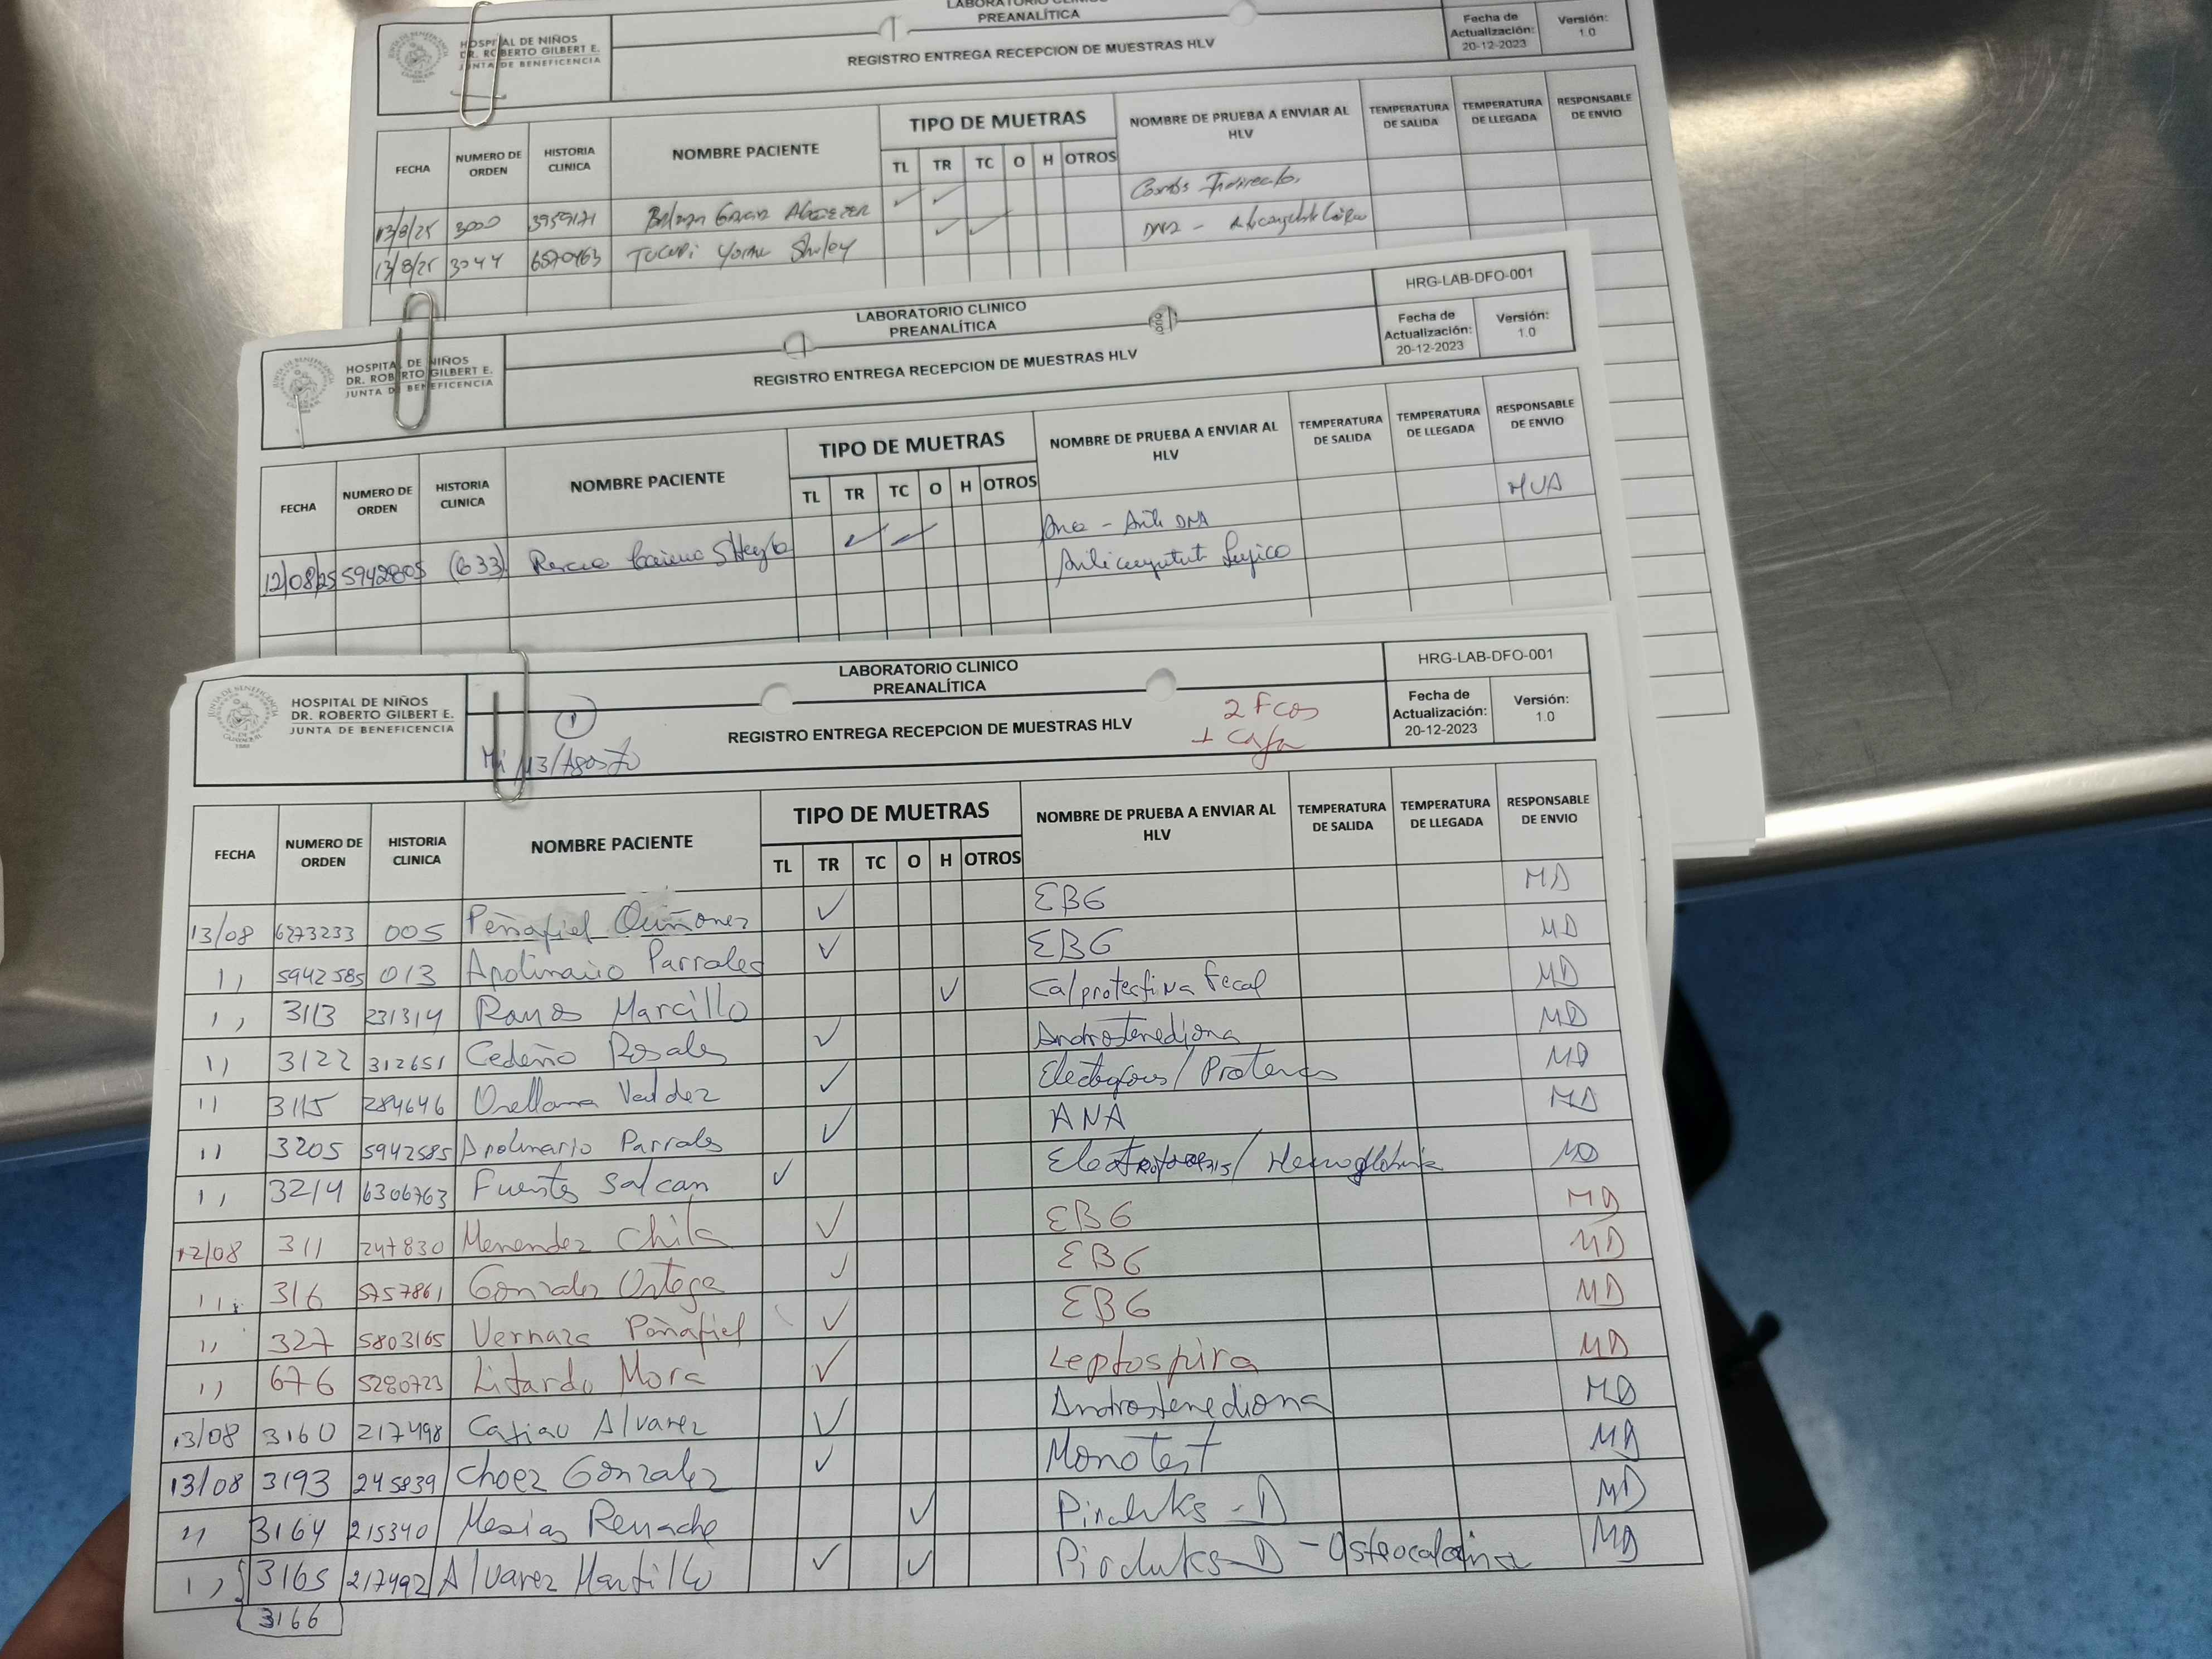 LABORATORIO CLINICO
PREANALÍTICA
HOSPITAL DE NIÑOS
DR. ROBERTO GILBERT E.
JUNTA DE BENEFICENCIA
REGISTRO ENTREGA RECEPCION DE MUESTRAS HLV
Fecha de Actualización: 20-12-2023
Versión: 1.0
FECHA NUMERO DE ORDEN HISTORIA CLINICA NOMBRE PACIENTE TIPO DE MUETRAS NOMBRE DE PRUEBA A ENVIAR AL HLV TEMPERATURA DE SALIDA TEMPERATURA DE LLEGADA RESPONSABLE DE ENVIO
TL TR TC O H OTROS
13/8/25 3000 ✓ ✓ Coombs Indirecto.
13/8/25 3044 6570463 ✓ ✓
HRG-LAB-DFO-001
LABORATORIO CLINICO
PREANALÍTICA
HOSPITAL DE NIÑOS
DR. ROBERTO GILBERT E.
JUNTA DE BENEFICENCIA
REGISTRO ENTREGA RECEPCION DE MUESTRAS HLV
Fecha de Actualización: 20-12-2023
Versión: 1.0
FECHA NUMERO DE ORDEN HISTORIA CLINICA NOMBRE PACIENTE TIPO DE MUETRAS NOMBRE DE PRUEBA A ENVIAR AL HLV TEMPERATURA DE SALIDA TEMPERATURA DE LLEGADA RESPONSABLE DE ENVIO
TL TR TC O H OTROS
12/08/25 5942805 (633) ✓ ✓ Ana - Anti DNA MVA
HRG-LAB-DFO-001
LABORATORIO CLINICO
PREANALÍTICA
HOSPITAL DE NIÑOS
DR. ROBERTO GILBERT E.
JUNTA DE BENEFICENCIA
1
Mi 13/Agosto
REGISTRO ENTREGA RECEPCION DE MUESTRAS HLV
2 Fcos
+ caja
Fecha de Actualización: 20-12-2023
Versión: 1.0
FECHA NUMERO DE ORDEN HISTORIA CLINICA NOMBRE PACIENTE TIPO DE MUETRAS NOMBRE DE PRUEBA A ENVIAR AL HLV TEMPERATURA DE SALIDA TEMPERATURA DE LLEGADA RESPONSABLE DE ENVIO
TL TR TC O H OTROS
13/08 6273233 005 Peñafiel Quiñonez ✓ EBG MD
11 5942585 013 Apolinario Parrales ✓ EBG MD
11 3113 231314 Ramos Marcillo ✓ Calprotectina Fecal MD
11 3122 312651 Cedeño Rosales ✓ Androstenediona MD
11 3115 284646 Orellana Valdez ✓ MD
11 3205 5942585 Apolinario Parrales ✓ ANA MD
11 3214 6306763 Fuentes Salcan ✓ Electroforesis/Hemoglobina MD
12/08 311 247830 Menendez Chila ✓ EBG MD
11 316 5757861 Gonzalez Ortega ✓ EBG MD
11 327 5803165 Vernaza Peñafiel ✓ EBG MD
11 676 5280723 Litardo Mora ✓ Leptospira MD
13/08 3160 217498 Alvarez ✓ Androstenediona MD
13/08 3193 245839 Choez Gonzalez ✓ Monotest MD
11 3164 215340 Mesias Renache ✓ Piriluks-D MD
11 3165 217492 Alvarez Mantillo ✓ ✓ Piriluks-D - Osteocalcina MD
3166